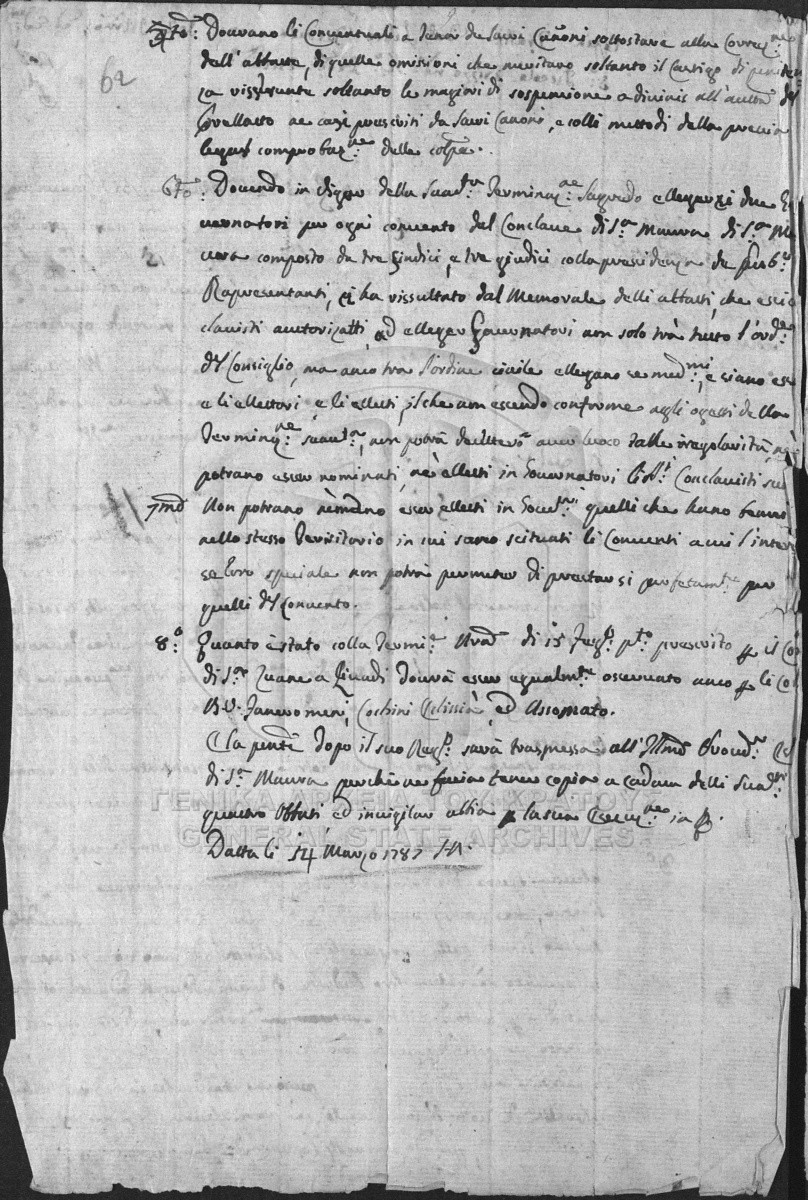 5to: Dovrano li Conventuali a tenor de Sacri Canoni sottostare alla Correz.ne
dell'abbate, di quelle omissioni che meritano soltanto il Castigo di peniten
za risservate soltanto le magiori di sospensione a divinis all'autta del
Prellatto ne casi prescritti da Sacri Canoni, e colli mettodi della previa
legal comprobaz.ne delle colpe.
62
6to: Dovendo in vigor della Terminaz.ne Sagredo ellegerzi due Go
vernatori per ogni convento dal Conclave di S.ta Maura di S.ta Ma
ura composto da tre Sindici, e tre giudici colla presidenza de Pub.ci
Rapresentanti, si ha rissultato dal Memoriale delli abbatti, che essi con
clavisti auttorizatti ad elleger Governatori non solo trà tutto l'ord.e
del Consiglio, ma anco tra l'ordine civile ellegano se med.mi, e siano essi
e li ellettori, e li elletti, il che non essendo conforme agli ogetti della
Terminaz.ne, non potrà aver luoco talle irregolarità, nè
potrano esser nominati, nè elletti in Governatori li Conclavisti
7mo Non potrano nemeno esser elletti in Gov.ri quelli che hano beni
nello stesso Territorio in cui sono scituati li Conventi a cui l'inte
se loro speciale non potrà permeter di prestarsi perfetam.te per
quelli del Convento.
8.o Quanto è stato colla Termi.e di 15 p.to prescritto p il Co
di S.n Zuane a Livadi dovrà esser egualm.te osservato anco p li Co
B.V. Faneromeni, Cochini Eclissià, ed Assomato.
E la pnte dopo il suo Reg.o sarà trasmessa all'Illmo Provud.r
di S.ta Maura perchè ne facia tener copia a cadaun delli
quatro Abbati ed invigilar abbia p la sua Esecuz.ne in q.
Datta li 14 Marzo 1787 S.N.
ΓΕΝΙΚΑ ΑΡΧΕΙΑ ΤΟΥ ΚΡΑΤΟΥΣ
GENERAL STATE ARCHIVES